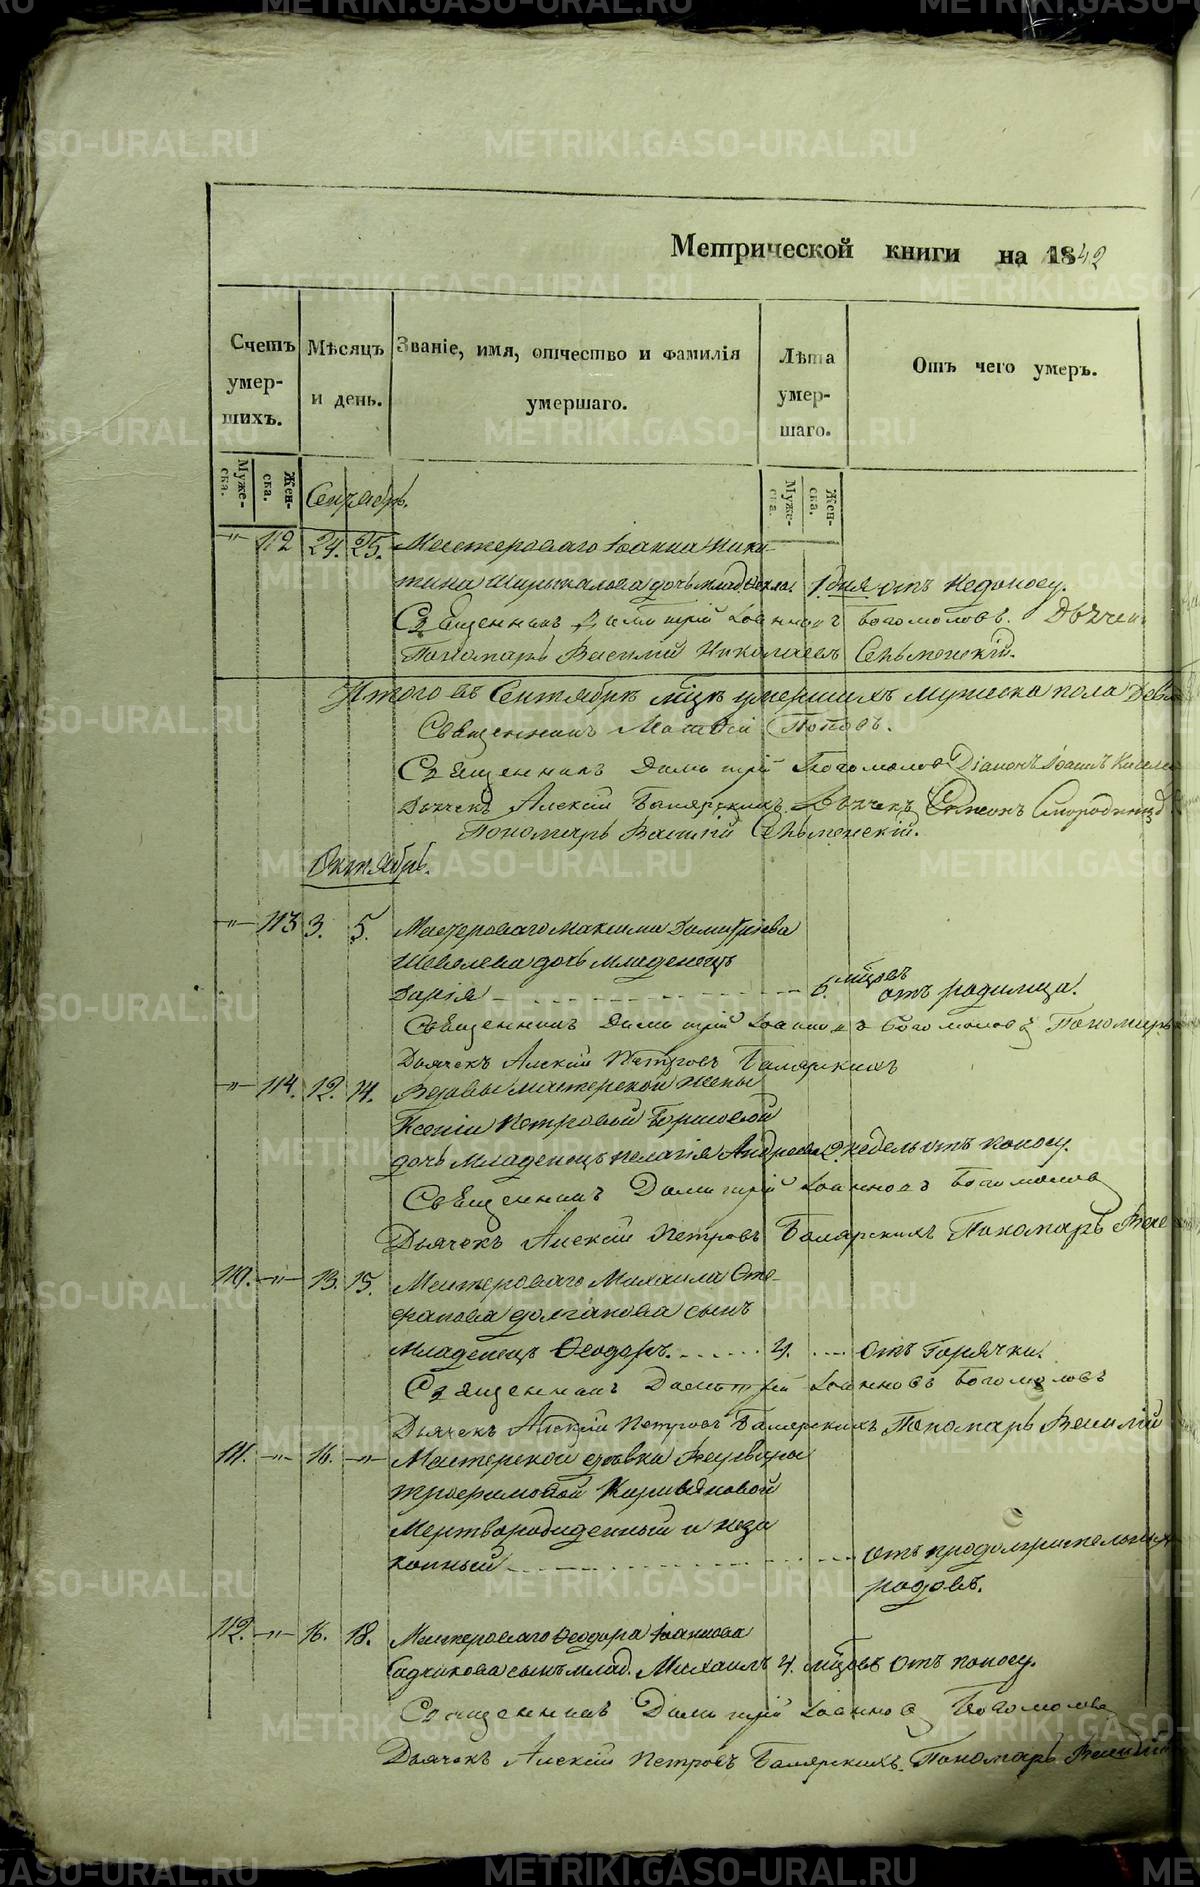 Метрической книги на 1842
Счетъ умершихъ.
Мужеска.
Женска.
Мѣсяцъ и день.
Званіе, имя, отчество и фамилія умершаго.
Лѣта умершаго.
Мужеска.
Женска.
Отъ чего умеръ.
Сентябрь.
" 112 24. 25. Мастероваго Іоанна Ники-
тина дочь млад. Фекла. 1 дня отъ недоносу.
Священникъ Димитрій Іоанновъ Богомоловъ.
Пономарь Василій Николаевъ Сельменскій.
Итого въ Сентябрѣ мцѣ умершихъ мужеска пола
Священникъ Матвій Поповъ.
Священникъ Димитрій Богомоловъ Діаконъ Іоаннъ
Дьячекъ Алексій Балярскихъ Дьячекъ Симеонъ
Пономарь Василій Сельменскій.
Октябрь.
" 113 3. 5. Мастероваго Максима Димитріева
Шевелева дочь младенецъ
Дарія 6. мцовъ отъ родимца.
Священникъ Димитрій Іоанновъ Богомоловъ Пономарь
Дьячекъ Алексій Петровъ Балярскихъ
" 114. 12. 14. Вдовы мастерской жены
Ксеніи Петровой
дочь младенецъ Пелагія Андреева 2. недель отъ поносу.
Священникъ Димитрій Іоанновъ Богомоловъ
Дьячекъ Алексій Петровъ Балярскихъ Пономарь
110. " 13. 15. Мастероваго Михаила Сте-
фанова Долганова сынъ
младенецъ Феодоръ. 4. отъ горячки.
Священникъ Димитрій Іоанновъ Богомоловъ
Дьячекъ Алексій Петровъ Балярскихъ Пономарь Василій
111. " 16. " Мастерской девки
Трофимовой
мертворожденный и неза-
конный отъ продолжительныхъ
родовъ.
112. " 16. 18. Мастероваго Феодора Іоаннова
сынъ млад. Михаилъ 4. мцовъ отъ поносу.
Священникъ Димитрій Іоанновъ Богомоловъ
Дьячекъ Алексій Петровъ Балярскихъ. Пономарь Василій
METRIKI.GASO-URAL.RU